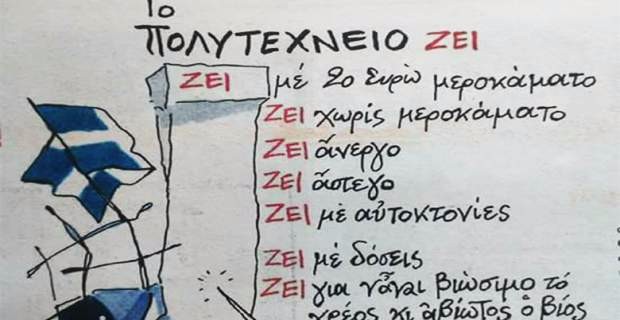 Το
ΠΟΛΥΤΕΧΝΕΙΟ ΖΕΙ
ΖΕΙ μέ 20 Ευρώ μεροκάματο
ΖΕΙ χωρίς μεροκάματο
ΖΕΙ ἄνεργο
ΖΕΙ ἄστεγο
ΖΕΙ μέ αὐτοκτονίες
ΖΕΙ μέ δόσεις
ΖΕΙ για νἆναι βιώσιμο τό
χρέος κι ἀβίωτος ὁ βίος